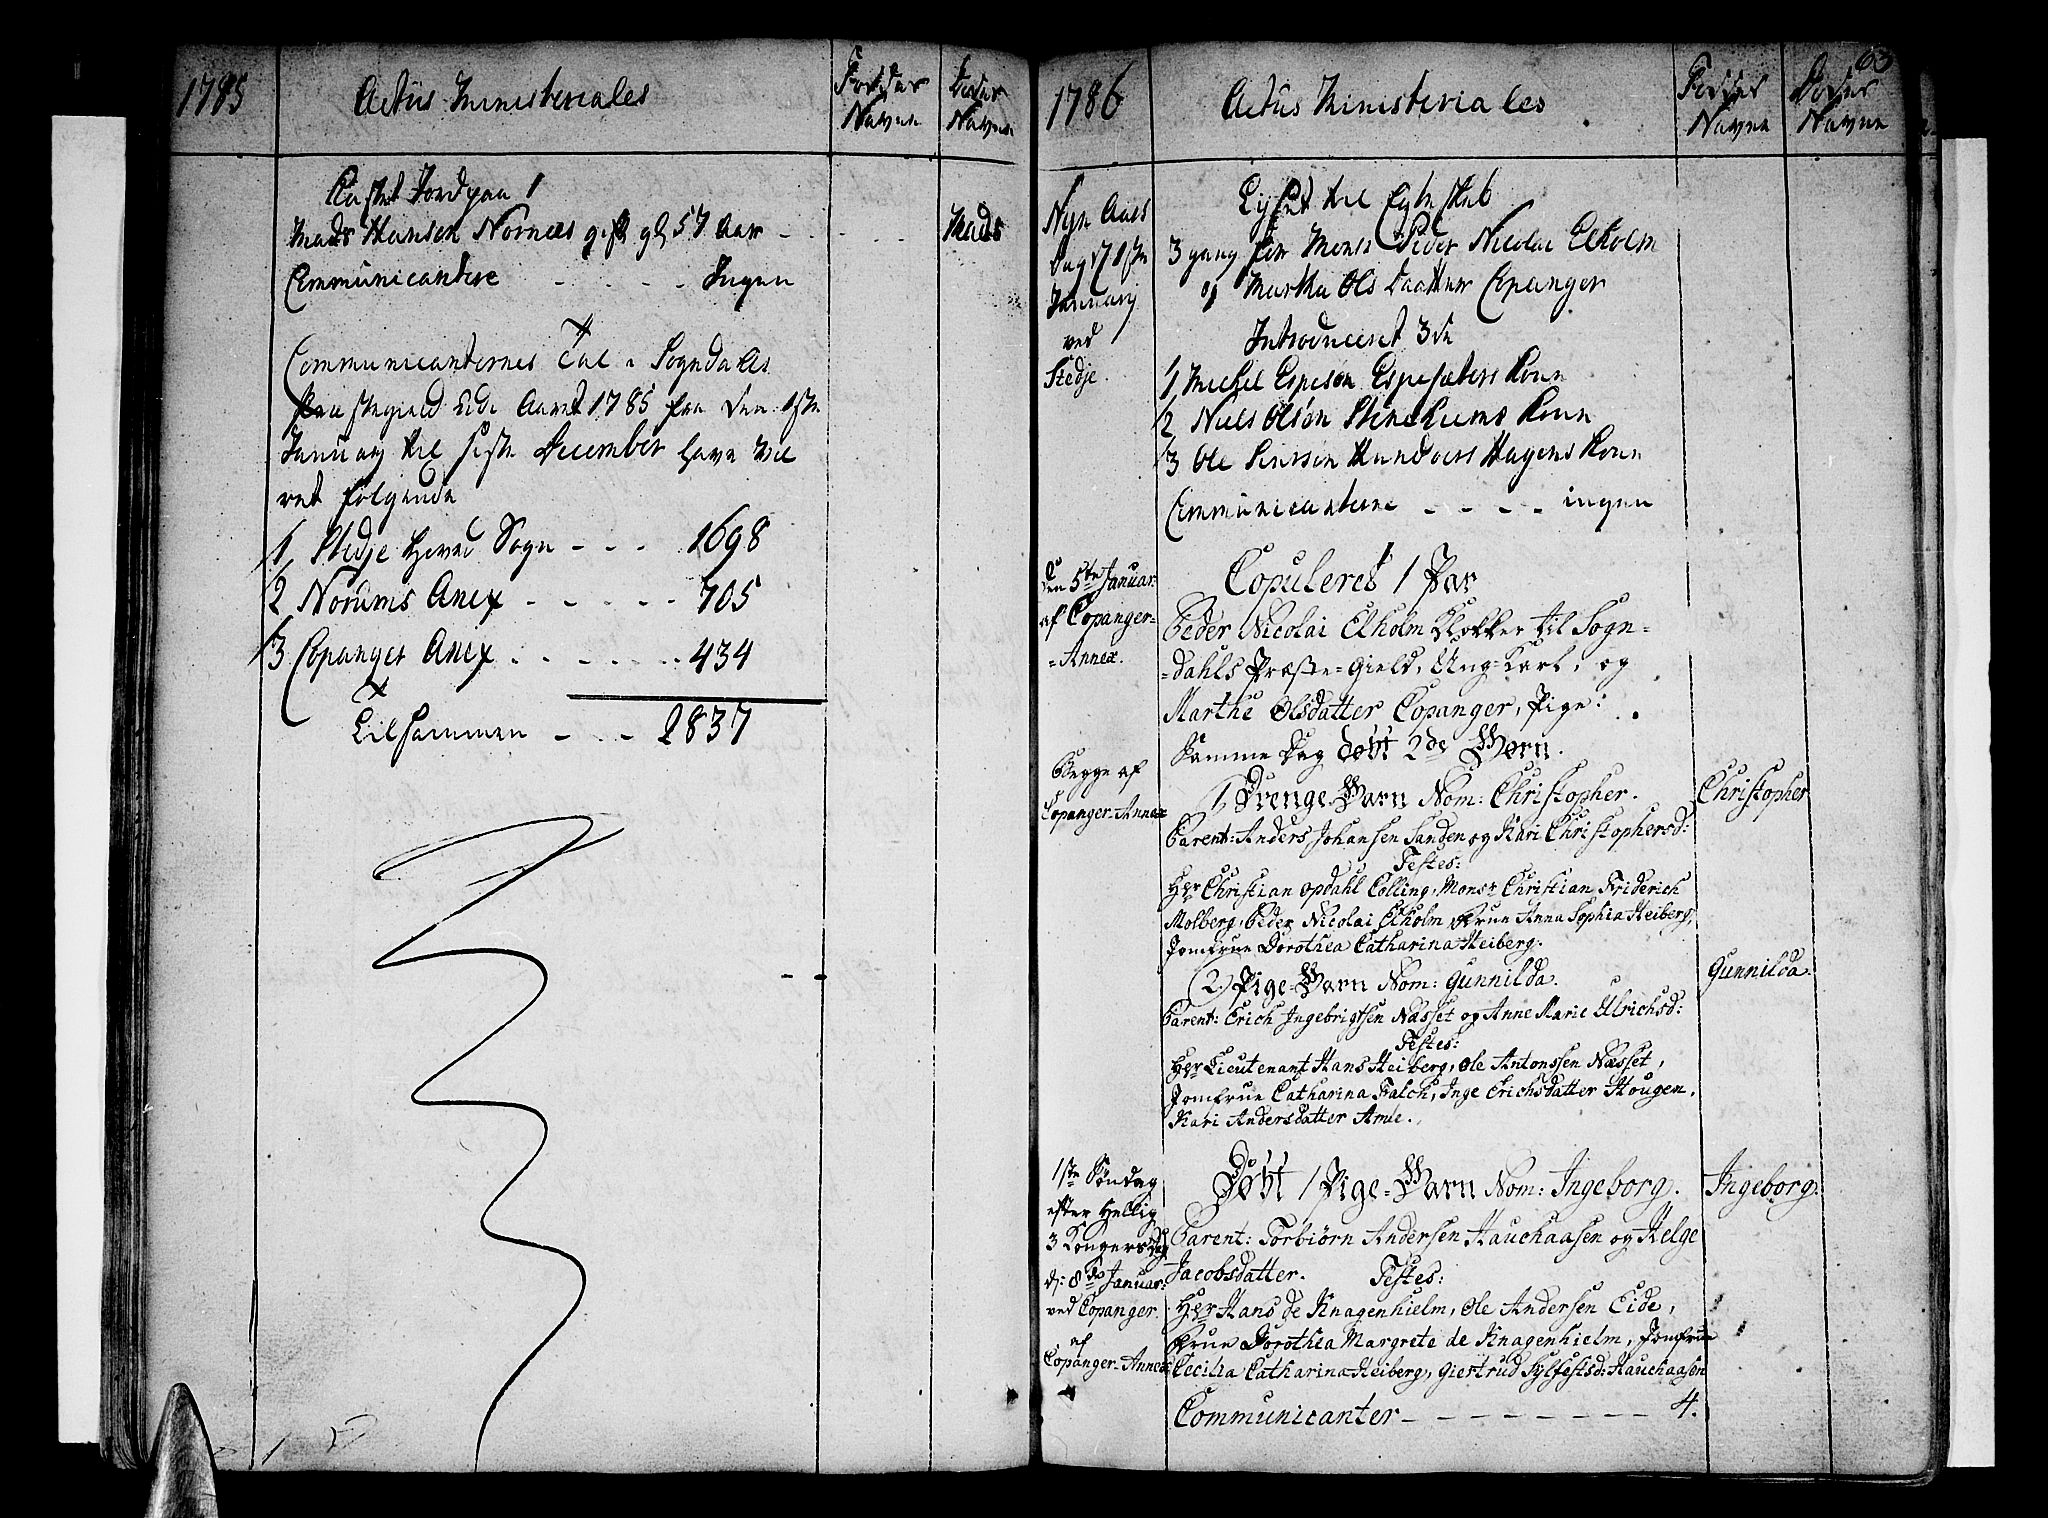 1785
Actus Ministeriales
Fødder
Navne
Døder
Navne
Kastet Jord paa 1
Mads Hansen Nornæs gift gl 57 Aar - - - - Mads
Communicantere - - - - - Ingen
Communicanternes Tal i Sogndahls
Præstegield udi Aaret 1785 fra den 1ste
January til siste December have væ
ret følgende
1, Stedje Hoved Sogn - - - 1698
2 Norums Anex - - - - - 705
3 Copanger Anex - - - - - - 434
Tilsammen - - - 2837
63
1786
Actus Ministeriales
Fødder
Navne
Døder
Navne
Nyt Aars
Dag d 1ste
January
ved
Stedje.
Lyst til Egteskab
3 gang for Monsr Peder Nicolai Elholm
og Martha Ols Daatter Copanger
Introduceret 3de
1, Michel Espeson Espesæters Kone
2 Niels Olson Stenehiems Kone
3 Ole Hundoers Hagens Kone
Communicantere - - - - ingen
Den 5te Januar:
af Copanger-
-Annex.
Copuleret 1 Par
Peder Nicolai Elholm Klokker til Sogn-
-dahls Præste-Gield, Ung-Karl, og
Marthe Olsdatter Copanger, Pige.
Samme Dag døbt 2de Børn.
Begge af
Copanger-Annex
1, Drenge-Barn Nom: Christopher. Christopher
Parent: Anders Johansen Sanden og Kari Christophersd:
Testes:
Hgr Christian Opdahl Colling, Monsr Christian Friderich
Molberg, Peder Nicolai Elholm Frue Anna Sophia Heiberg,
Jomfrue Dorothea Catharina Heiberg.
2) Pige-Barn Nom: Gunnilda. Gunnilda.
Parent: Erich Ingebrigtsen Næsset og Anne Marie Ulrichsd:
Testes:
Hgr Lieutenant Hans Heiberg, Ole Antonssen Næsset,
Jomfrue Catharina Falch, Inge Erichsdatter Hougen,
Kari Andersdatter Amle.
1ste Søndag
efter Hellig
3 Kongers Dag
d: 8de Januar:
ved Copanger.
af
Copanger-Annex
Døbt 1 Pige-Barn Nom: Ingeborg. Ingeborg.
Parent: Torbiørn Andersen Hauchaasen og Helge
Jacobsdatter. Testes:
Hgr Hans de Knagenhielm, Ole Andersen Eide,
Frue Dorothea Margrete de Knagenhielm, Jomfrue
Cecilia Catharina Heiberg, Giertrud Sylfestsd: Hauchaasen
Communicanter - - - - - - - - 4.